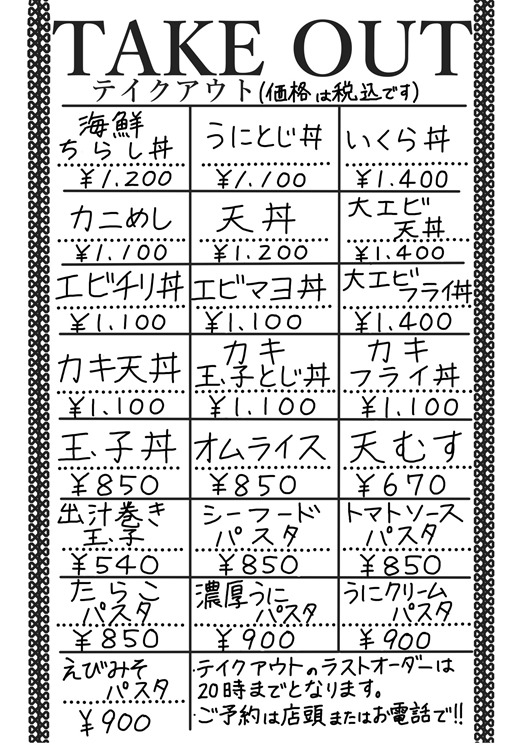 TAKE OUT
テイクアウト(価格は税込です)
海鮮
ちらし丼
¥1.200
うにとじ丼
¥1.100
いくら丼
¥1.400
カニめし
¥1.100
天丼
¥1.200
大エビ
天丼
¥1.400
エビチリ丼
¥1.100
エビマヨ丼
¥1.100
大エビ
フライ丼
¥1.400
カキ天丼
¥1.100
カキ
玉子とじ丼
¥1.100
カキ
フライ丼
¥1.100
玉子丼
¥850
オムライス
¥850
天むす
¥670
出汁巻き
玉子
¥540
シーフード
パスタ
¥850
トマトソース
パスタ
¥850
たらこ
パスタ
¥850
濃厚うに
パスタ
¥900
うにクリーム
パスタ
¥900
えびみそ
パスタ
¥900
・テイクアウトのラストオーダーは
20時までとなります。
・ご予約は店頭またはお電話で!!